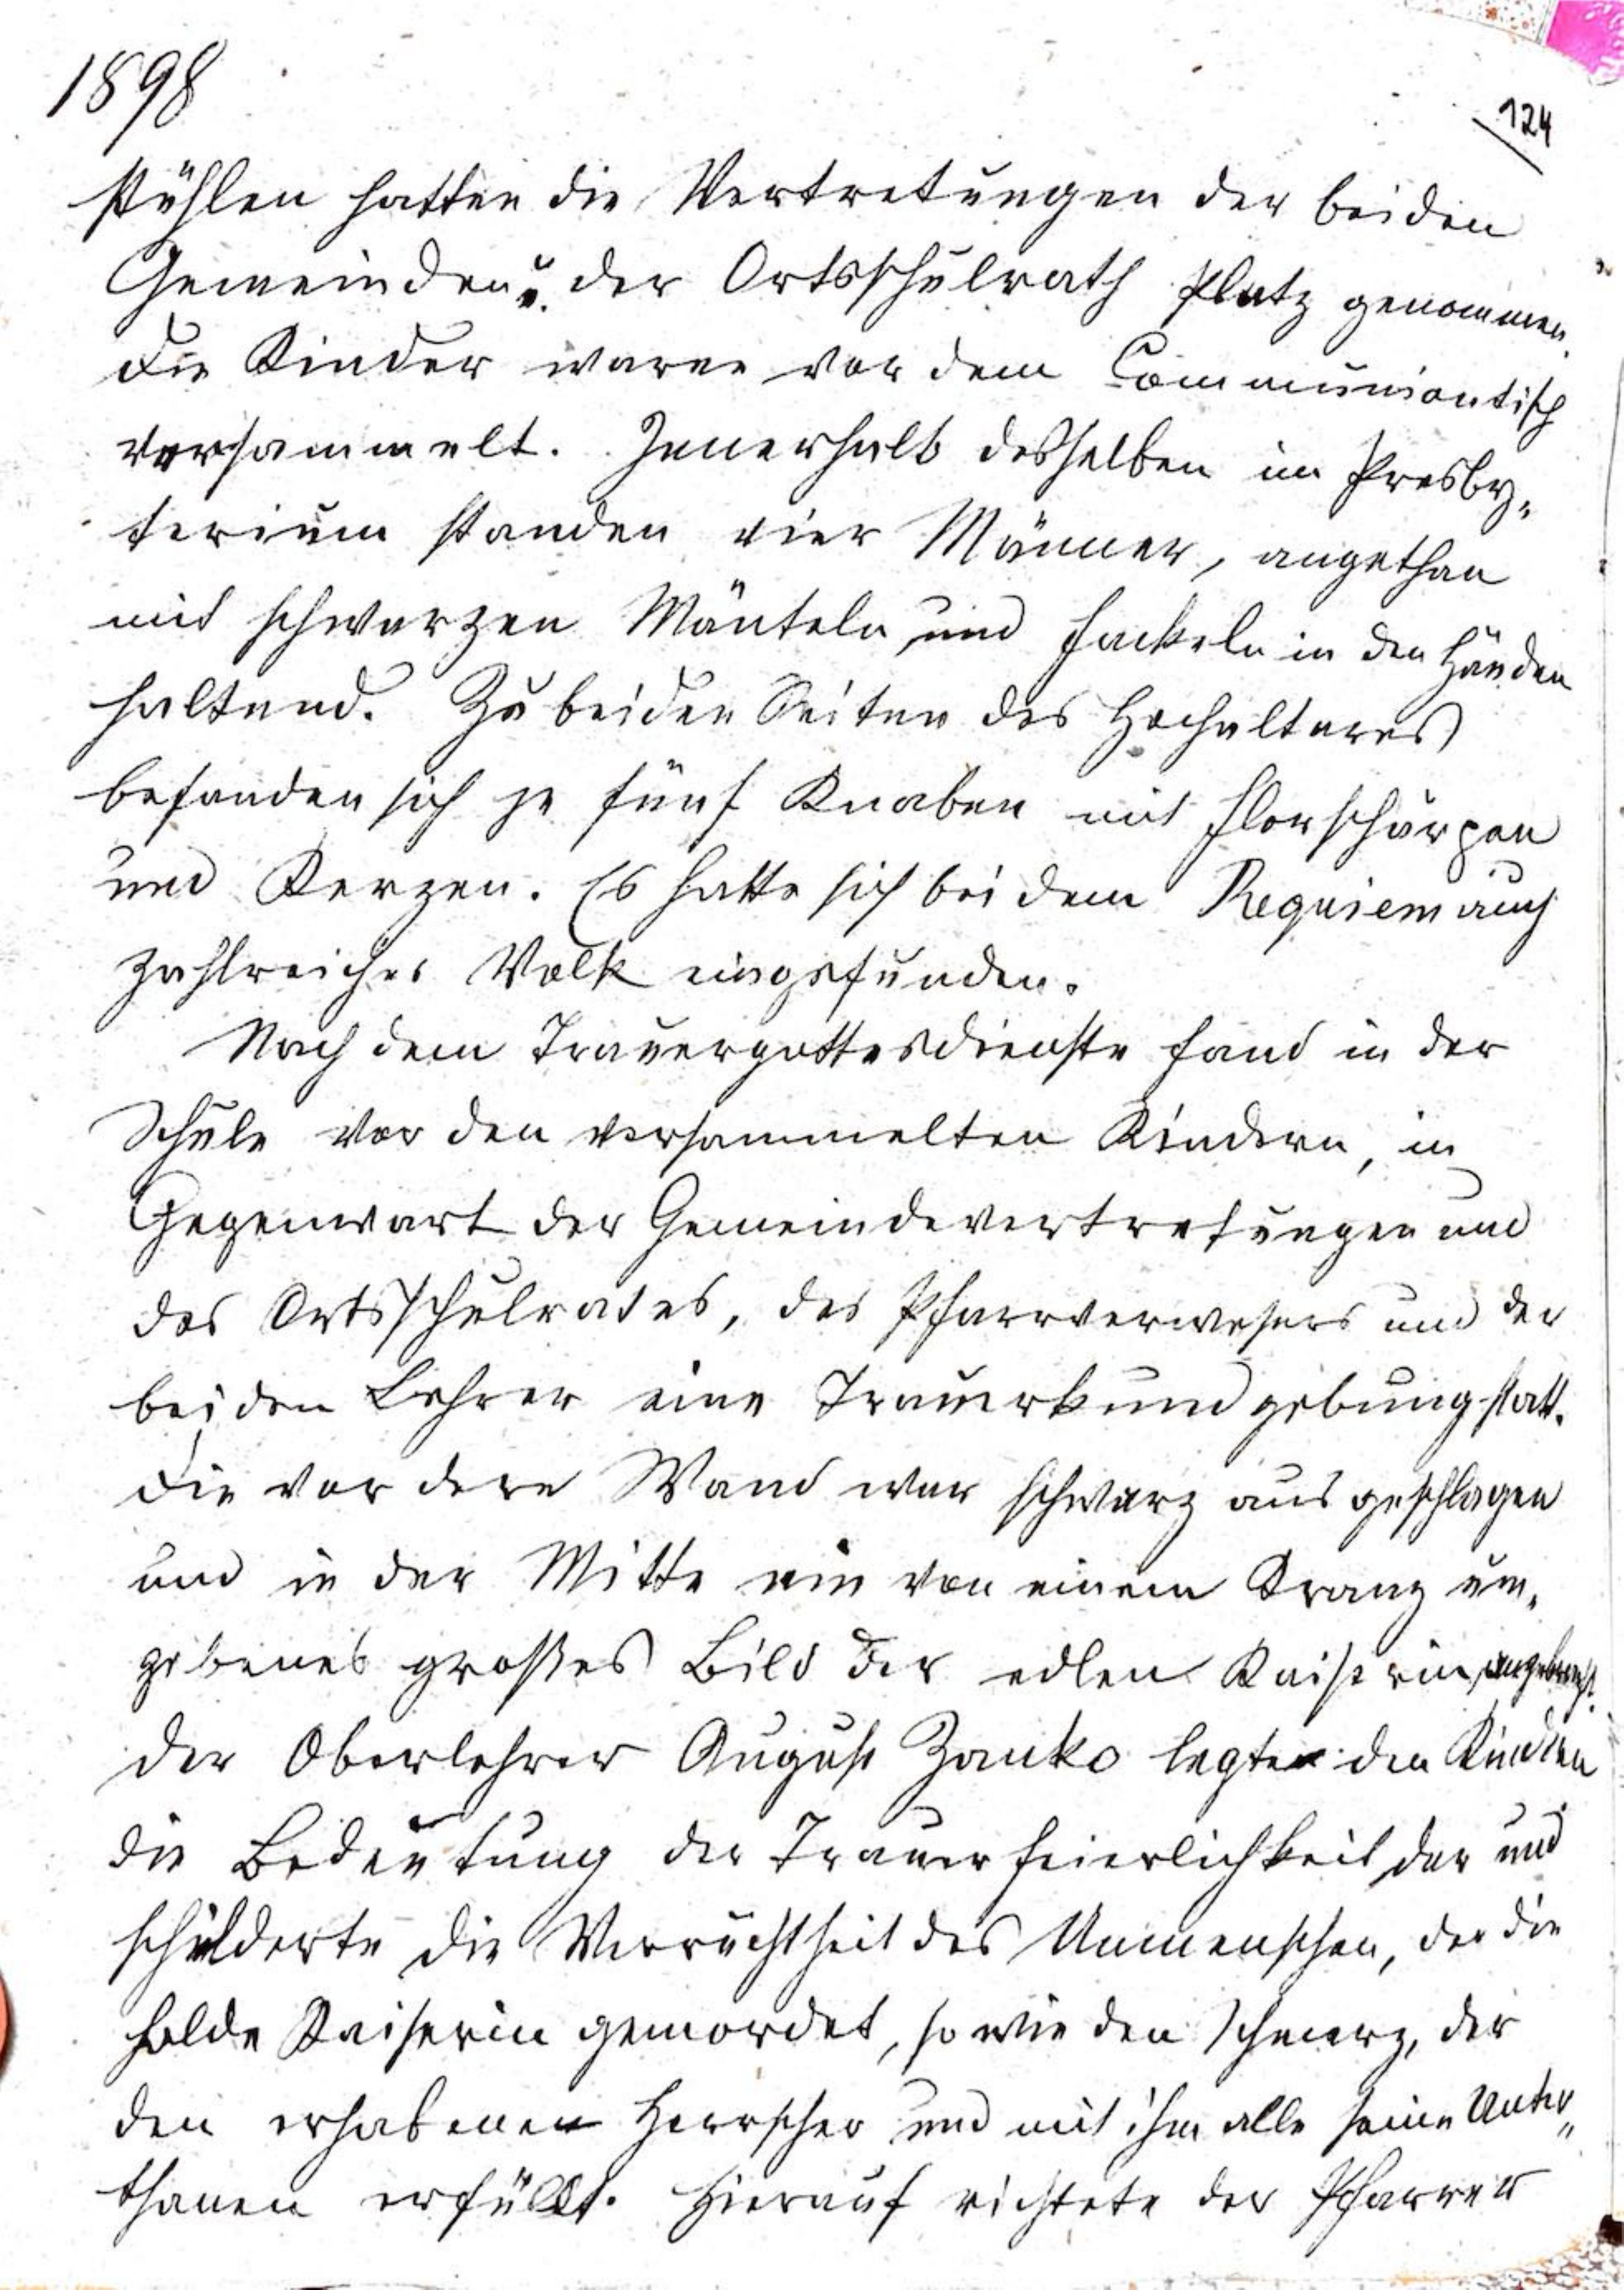 1898
124
stühlen hatten die Vertretungen der beiden
Gemeinden u. der Ortsschulrath Platz genommen.
Die Kinder waren vor dem Communiontisch
versammelt. Innerhalb desselben im Presby-
terium standen vier Männer, angethan
mit schwarzen Mänteln und Fackeln in den Händen
haltend. Zu beiden Seiten des Hochaltares
befanden sich je fünf Knaben mit Florschärpen
und Kerzen. Es hatte sich bei dem Requiem auch
zahlreiches Volk eingefunden.
Nach dem Trauergottesdienste fand in der
Schule vor den versammelten Kindern, in
Gegenwart der Gemeindevertretungen und
des Ortsschulrates, des Pfarrverwesers und der
beiden Lehrer eine Trauerkundgebung statt.
Die vordere Wand war schwarz ausgeschlagen
und in der Mitte ein von einem Kranz um-
gebenes großes Bild der edlen Kaiserin angebracht.
Der Oberlehrer August Zanko legte den Kindern
die Bedeutung der Trauerfeierlichkeit dar und
schilderte die Verruchtheit des Unmenschen, der die
holde Kaiserin gemordet, sowie den Schmerz, der
den erhabenen Herrscher und mit ihm alle seine Unter-
thanen erfüllt. Hierauf richtete der Pfarrer